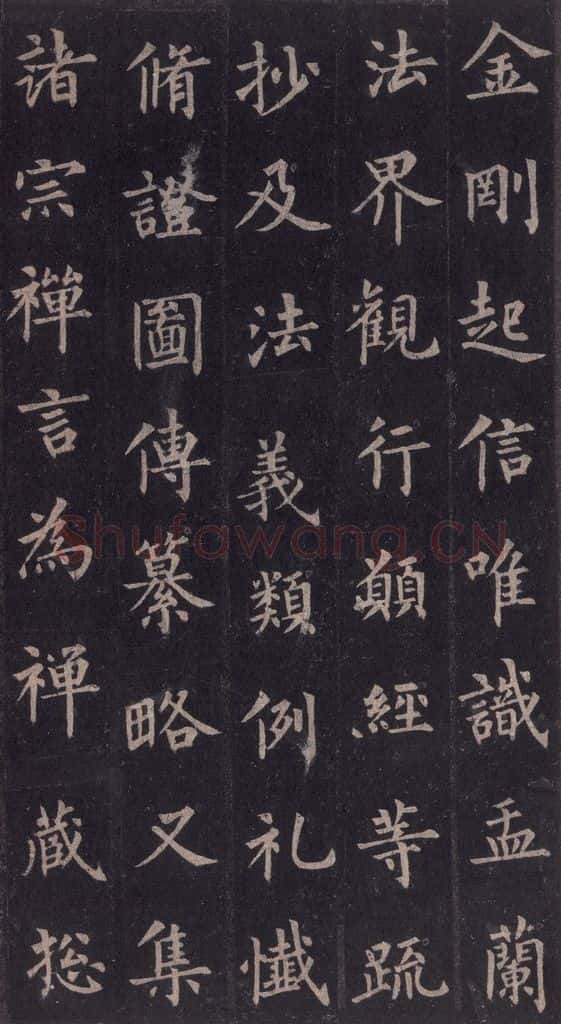 金剛起信唯識盂蘭
法界觀行願經等䟽
抄及法義類例礼懺
脩證圖傳纂略又集
諸宗禪言為禪蔵捴
Shufawang.CN